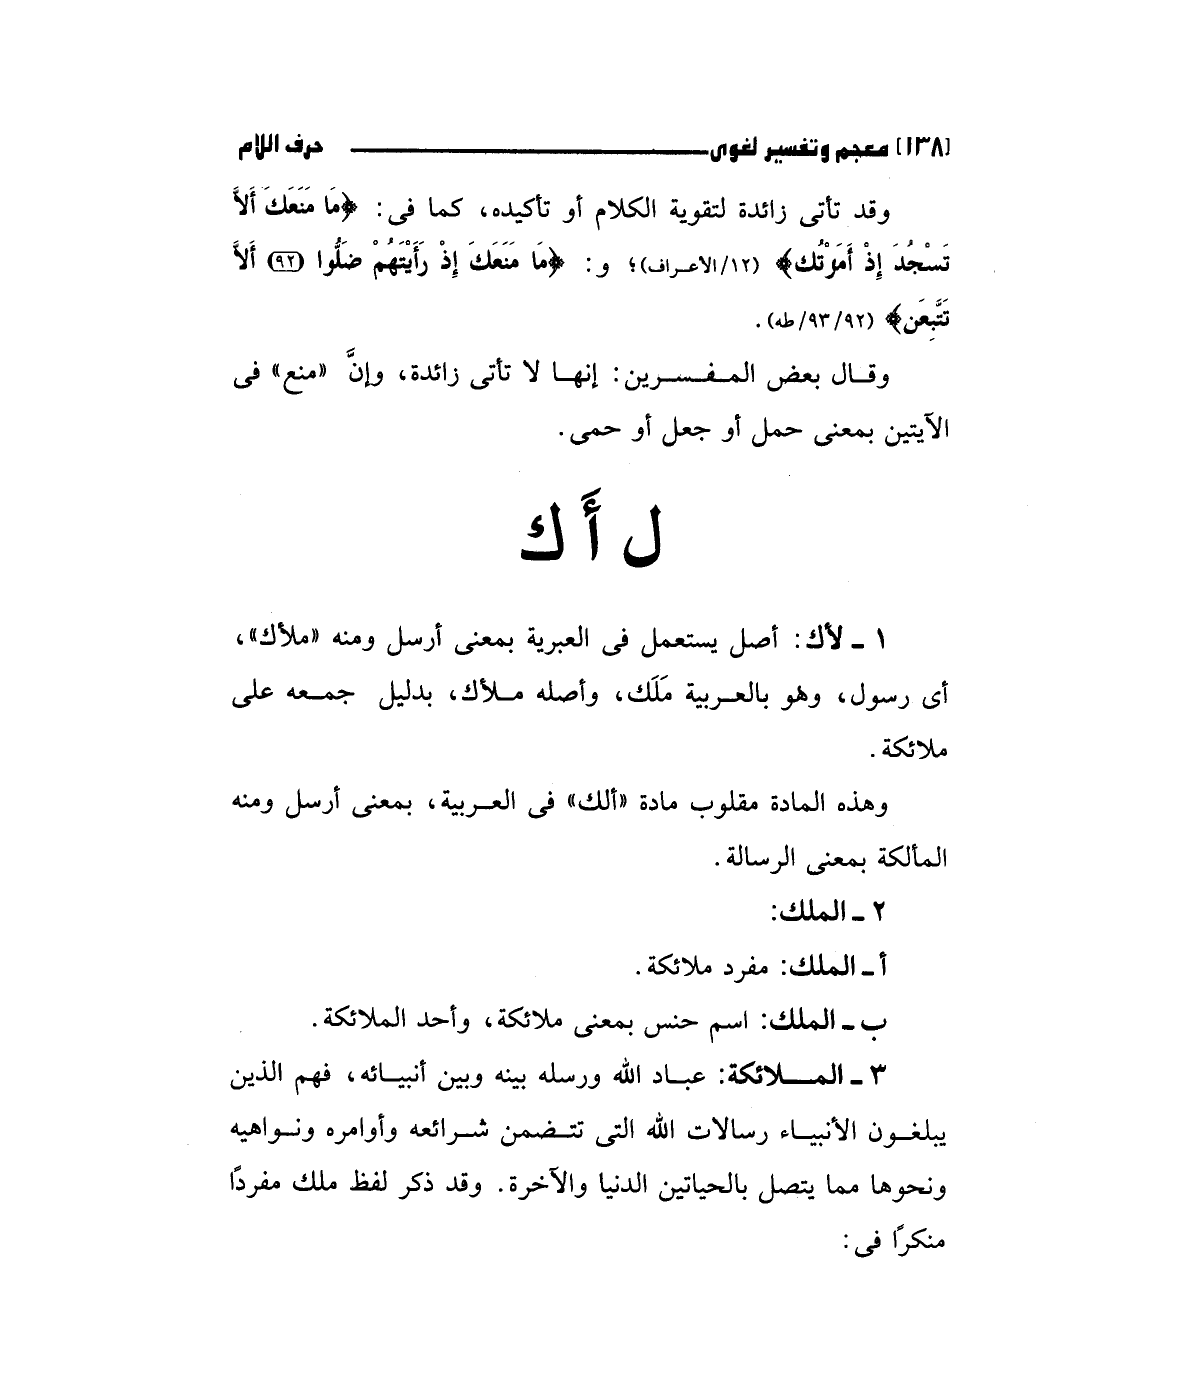 [١٣٨] معجم وتفسير لغوى ــــــــ حرف اللام
وقد تأتى زائدة لتقوية الكلام أو تأكيده، كما فى: ﴿مَا مَنَعَكَ أَلاَّ
تَسْجُدَ إِذْ أَمَرْتُك﴾ (١٢/الاعراف)؛ و: ﴿مَا مَنَعَكَ إِذْ رَأَيْتَهُمْ ضَلُّوا (٩٢) أَلاَّ
تَتَّبِعَنِ﴾ (٩٣/٩٢/طه).
وقال بعض المفسرين: إنها لا تأتى زائدة، وإنَّ «منع» فى
الآيتين بمعنى حمل أو جعل أو حمى.
ل أَ ك
١ ـ لأك: أصل يستعمل فى العبرية بمعنى أرسل ومنه «ملأك»،
أى رسول، وهو بالعربية مَلَك، وأصله ملأك، بدليل جمعه على
ملائكة.
وهذه المادة مقلوب مادة «ألك» فى العربية، بمعنى أرسل ومنه
المألكة بمعنى الرسالة.
٢ ـ الملك:
أ ـ الملك: مفرد ملائكة.
ب ـ الملك: اسم حنس بمعنى ملائكة، وأحد الملائكة.
٣ ـ الملائكة: عباد الله ورسله بينه وبين أنبيائه، فهم الذين
يبلغون الأنبياء رسالات الله التى تتضمن شرائعه وأوامره ونواهيه
ونحوها مما يتصل بالحياتين الدنيا والآخرة. وقد ذكر لفظ ملك مفردًا
منكرًا فى: